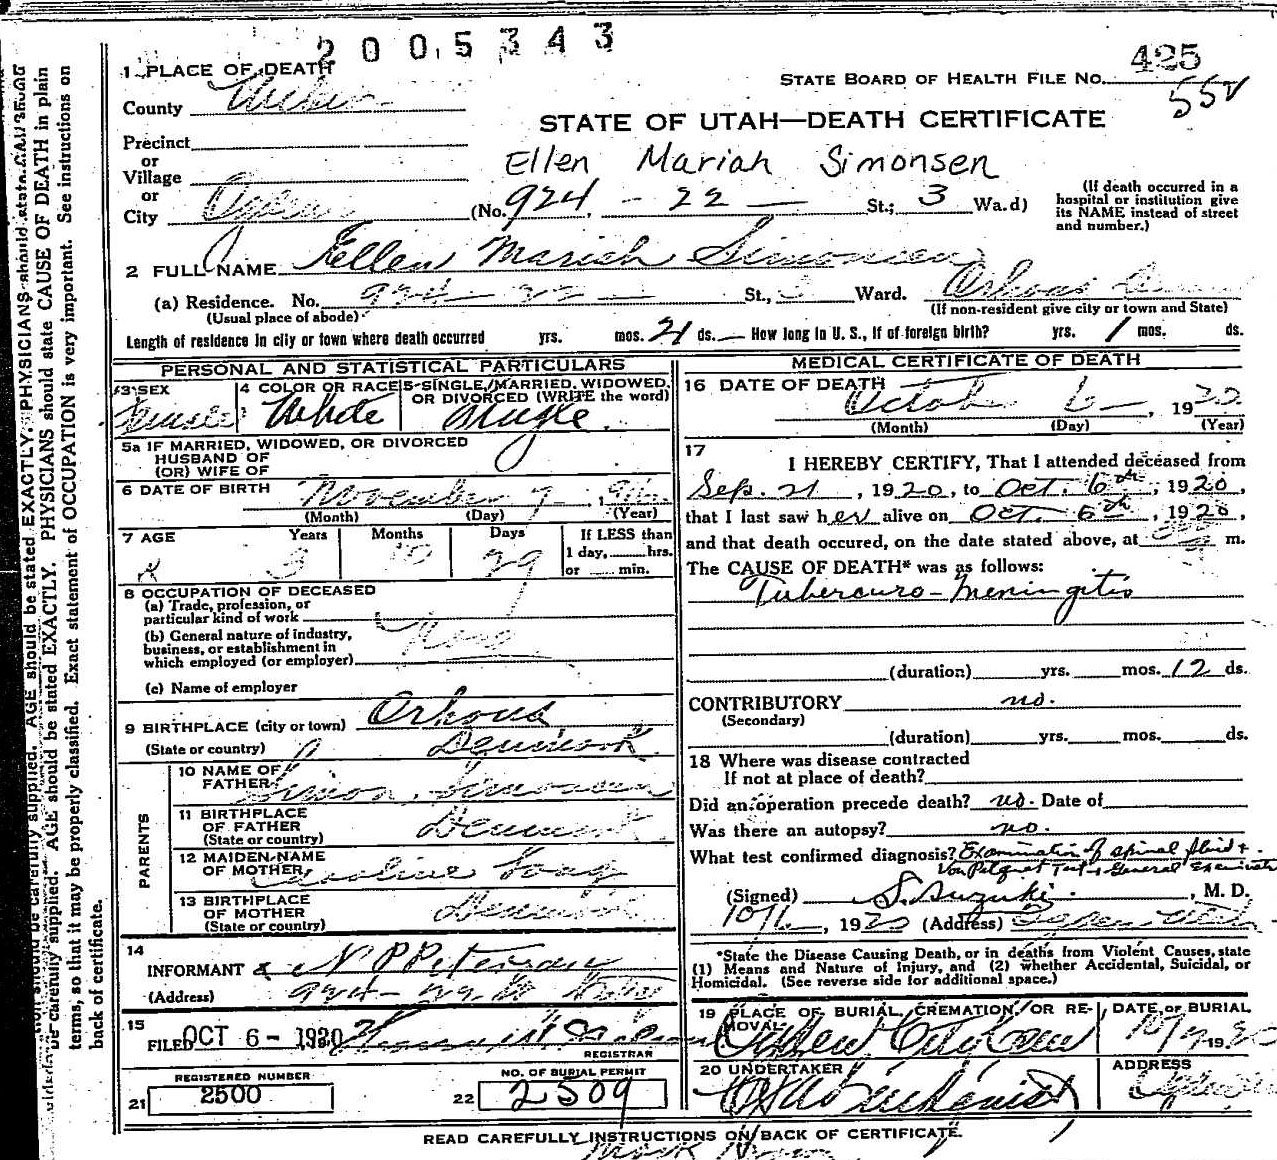 2005343
1 PLACE OF DEATH
STATE BOARD OF HEALTH FILE NO. 425
County Weber
552
STATE OF UTAH—DEATH CERTIFICATE
Precinct
or
Village
or
City Ogden
Ellen Mariah Simonsen
(No. 924 - 22 - St.; 3 Wa.d)
(If death occurred in a hospital or institution give its NAME instead of street and number.)
2 FULL NAME Ellen Mariah Simonsen
(a) Residence. No. 924 - 22 - St., 3 Ward.
(Usual place of abode)
(If non-resident give city or town and State)
Length of residence in city or town where death occurred yrs. mos. 21 ds. — How long in U. S., if of foreign birth? yrs. 1 mos. ds.
PERSONAL AND STATISTICAL PARTICULARS
3 SEX Female
4 COLOR OR RACE White
5 SINGLE, MARRIED, WIDOWED, OR DIVORCED (WRITE the word) Single.
5a IF MARRIED, WIDOWED, OR DIVORCED
HUSBAND OF
(OR) WIFE OF
6 DATE OF BIRTH November 7, 19
(Month) (Day) (Year)
7 AGE Years Months Days
3 10 29
If LESS than
1 day, hrs.
or min.
8 OCCUPATION OF DECEASED
(a) Trade, profession, or
particular kind of work
(b) General nature of industry,
business, or establishment in
which employed (or employer)
(c) Name of employer
9 BIRTHPLACE (city or town)
(State or country) Denmark
PARENTS
10 NAME OF
FATHER Simon Simonsen
11 BIRTHPLACE
OF FATHER
(State or country) Denmark
12 MAIDEN NAME
OF MOTHER Caroline
13 BIRTHPLACE
OF MOTHER
(State or country) Denmark
14
INFORMANT N P Peterson
(Address) 924
15
FILED OCT 6 - 1920
REGISTRAR
REGISTERED NUMBER
21 2500
NO. OF BURIAL PERMIT
22 2509
MEDICAL CERTIFICATE OF DEATH
16 DATE OF DEATH October 6, 1920
(Month) (Day) (Year)
17
I HEREBY CERTIFY, That I attended deceased from
Sep. 21, 1920, to Oct. 6th, 1920,
that I last saw her alive on Oct. 6th, 1920,
and that death occured, on the date stated above, at m.
The CAUSE OF DEATH* was as follows:
Tubercuro-Meningitis
(duration) yrs. mos. 12 ds.
CONTRIBUTORY no.
(Secondary)
(duration) yrs. mos. ds.
18 Where was disease contracted
If not at place of death?
Did an operation precede death? no. Date of
Was there an autopsy? no.
What test confirmed diagnosis? Examination of spinal fluid +
Von Pirquet Test + General Examination
(Signed) S. Suzuki, M. D.
10/6, 1920 (Address) Ogden Utah
*State the Disease Causing Death, or in deaths from Violent Causes, state
(1) Means and Nature of Injury, and (2) whether Accidental, Suicidal, or
Homicidal. (See reverse side for additional space.)
19 PLACE OF BURIAL, CREMATION, OR REMOVAL Ogden City Cem
DATE OF BURIAL
20 UNDERTAKER
ADDRESS Ogden
READ CAREFULLY INSTRUCTIONS ON BACK OF CERTIFICATE.
be carefully supplied. AGE should be stated EXACTLY. PHYSICIANS should state CAUSE OF DEATH in plain
terms, so that it may be properly classified. Exact statement of OCCUPATION is very important. See instructions on
back of certificate.